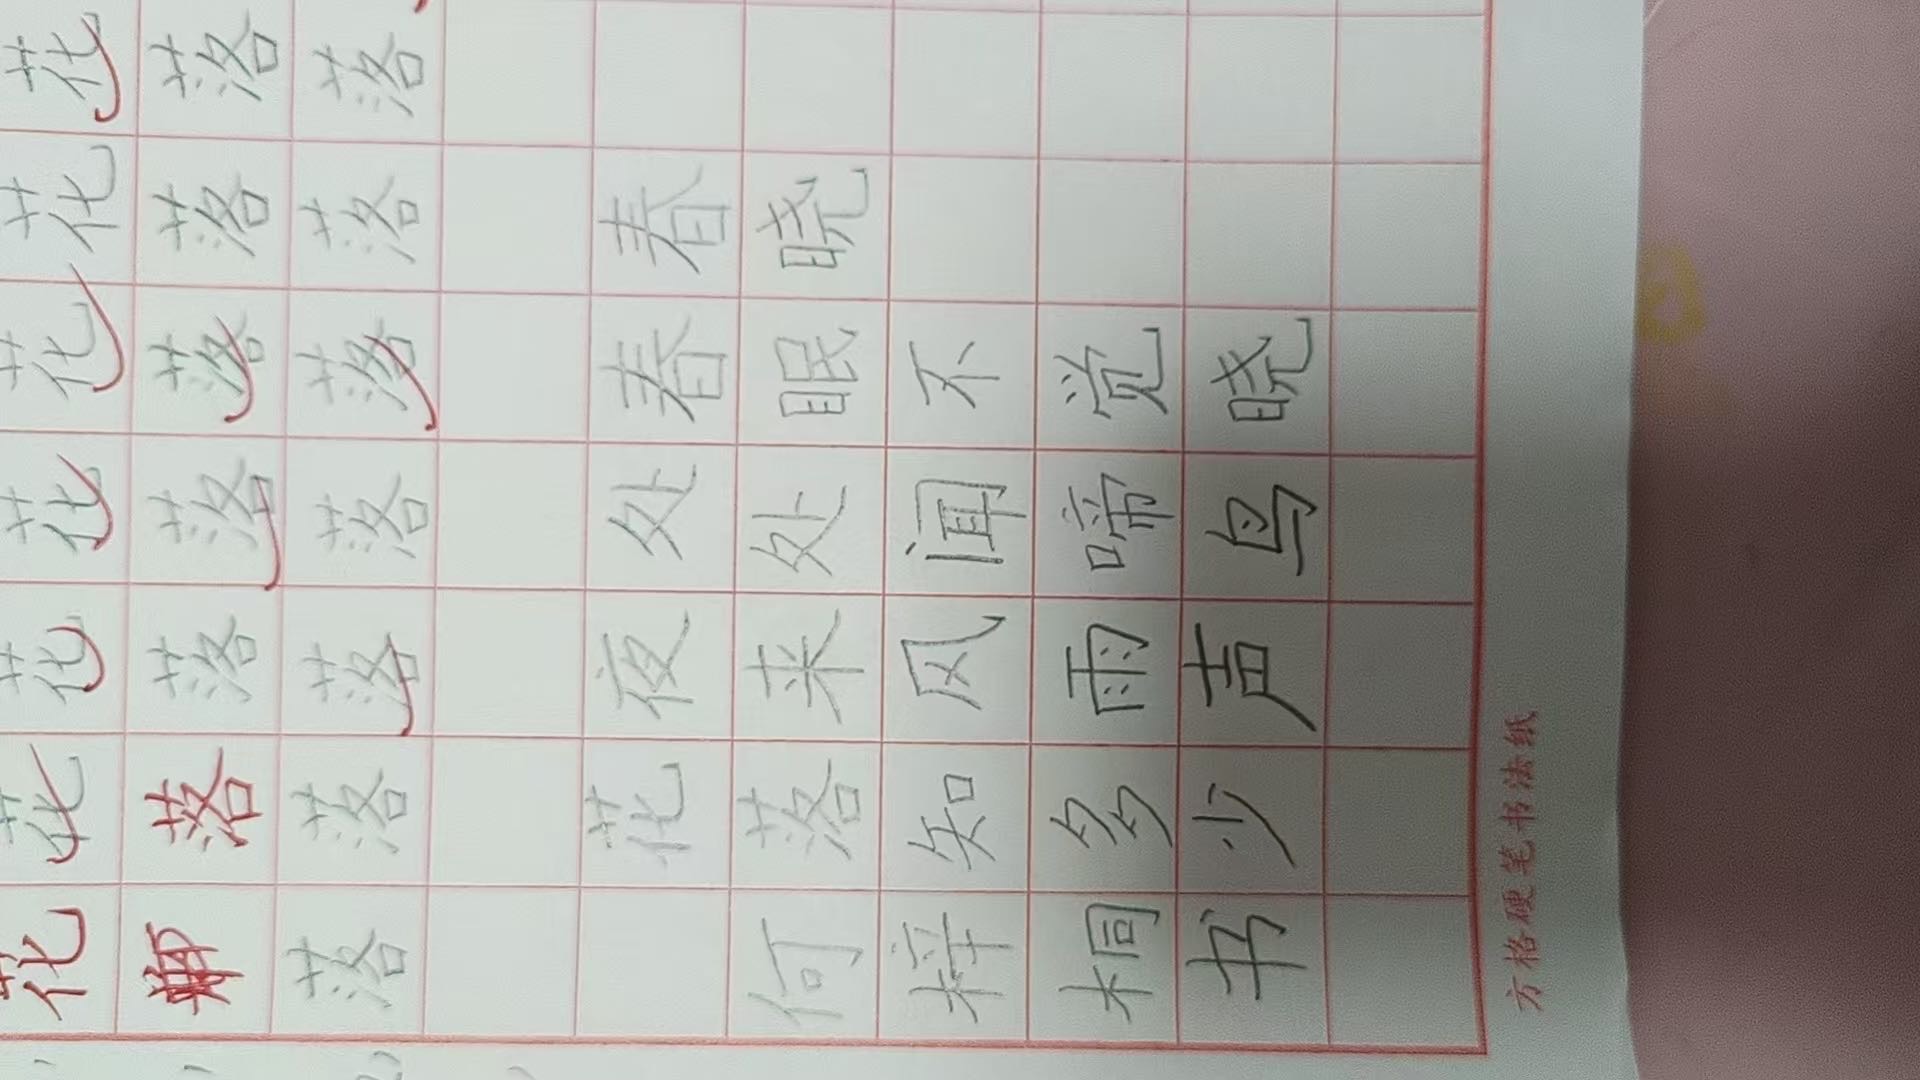 花花花花花花花
落落落落落落
落落落落落落落
春晓
春眠不觉晓
处处闻啼鸟
夜来风雨声
花落知多少
何梓桐书
方格硬笔书法纸